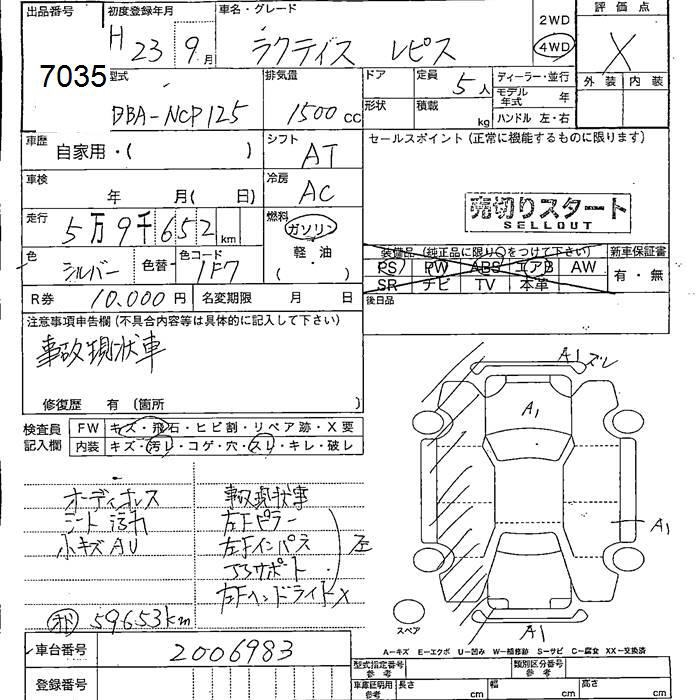 出品番号
7035
初度登録年月
H 23年 9月
車名・グレード
ラクティス レピス
2WD
4WD
評価点
X
外装 内装
型式
DBA-NCP125
排気量
1500cc
ドア
定員
5人
形状
積載
kg
ディーラー・並行
モデル年式 年
ハンドル 左・右
車歴
自家用・( )
シフト
AT
車検
年 月( 日)
冷房
AC
走行
5万9千652km
燃料
ガソリン
軽・油
( ・ )
色
シルバー
色替
色コード
1F7
R券 10.000円
名変期限 月 日
セールスポイント(正常に機能するものに限ります)
売切りスタート
SELLOUT
装備品(純正品に限り○をつけて下さい)
PS PW ABS エアB AW
SR ナビ TV 本革
新車保証書
有・無
後日品
注意事項申告欄(不具合内容等は具体的に記入して下さい)
事故現状車
修復歴 有(箇所 )
検査員記入欄
FW キズ・飛石・ヒビ割・リペア跡・X要
内装 キズ・汚レ・コゲ・穴・スレ・キレ・破レ
オーディオレス
シート汚れ
小キズAU
事故現状車
左Fピラー
左Fインパネ
SSサポート
左Fヘッドライト X
歪
59653km
A1 ズレ
A1
A1
A1
スペア
A-キズ E-エクボ U-凹み W-補修跡 S-サビ C-腐食 XX-交換済
車台番号
2006983
登録番号
型式指定番号 参考
類別区分番号 参考
車庫証明用 参考
長さ cm
幅 cm
高さ cm